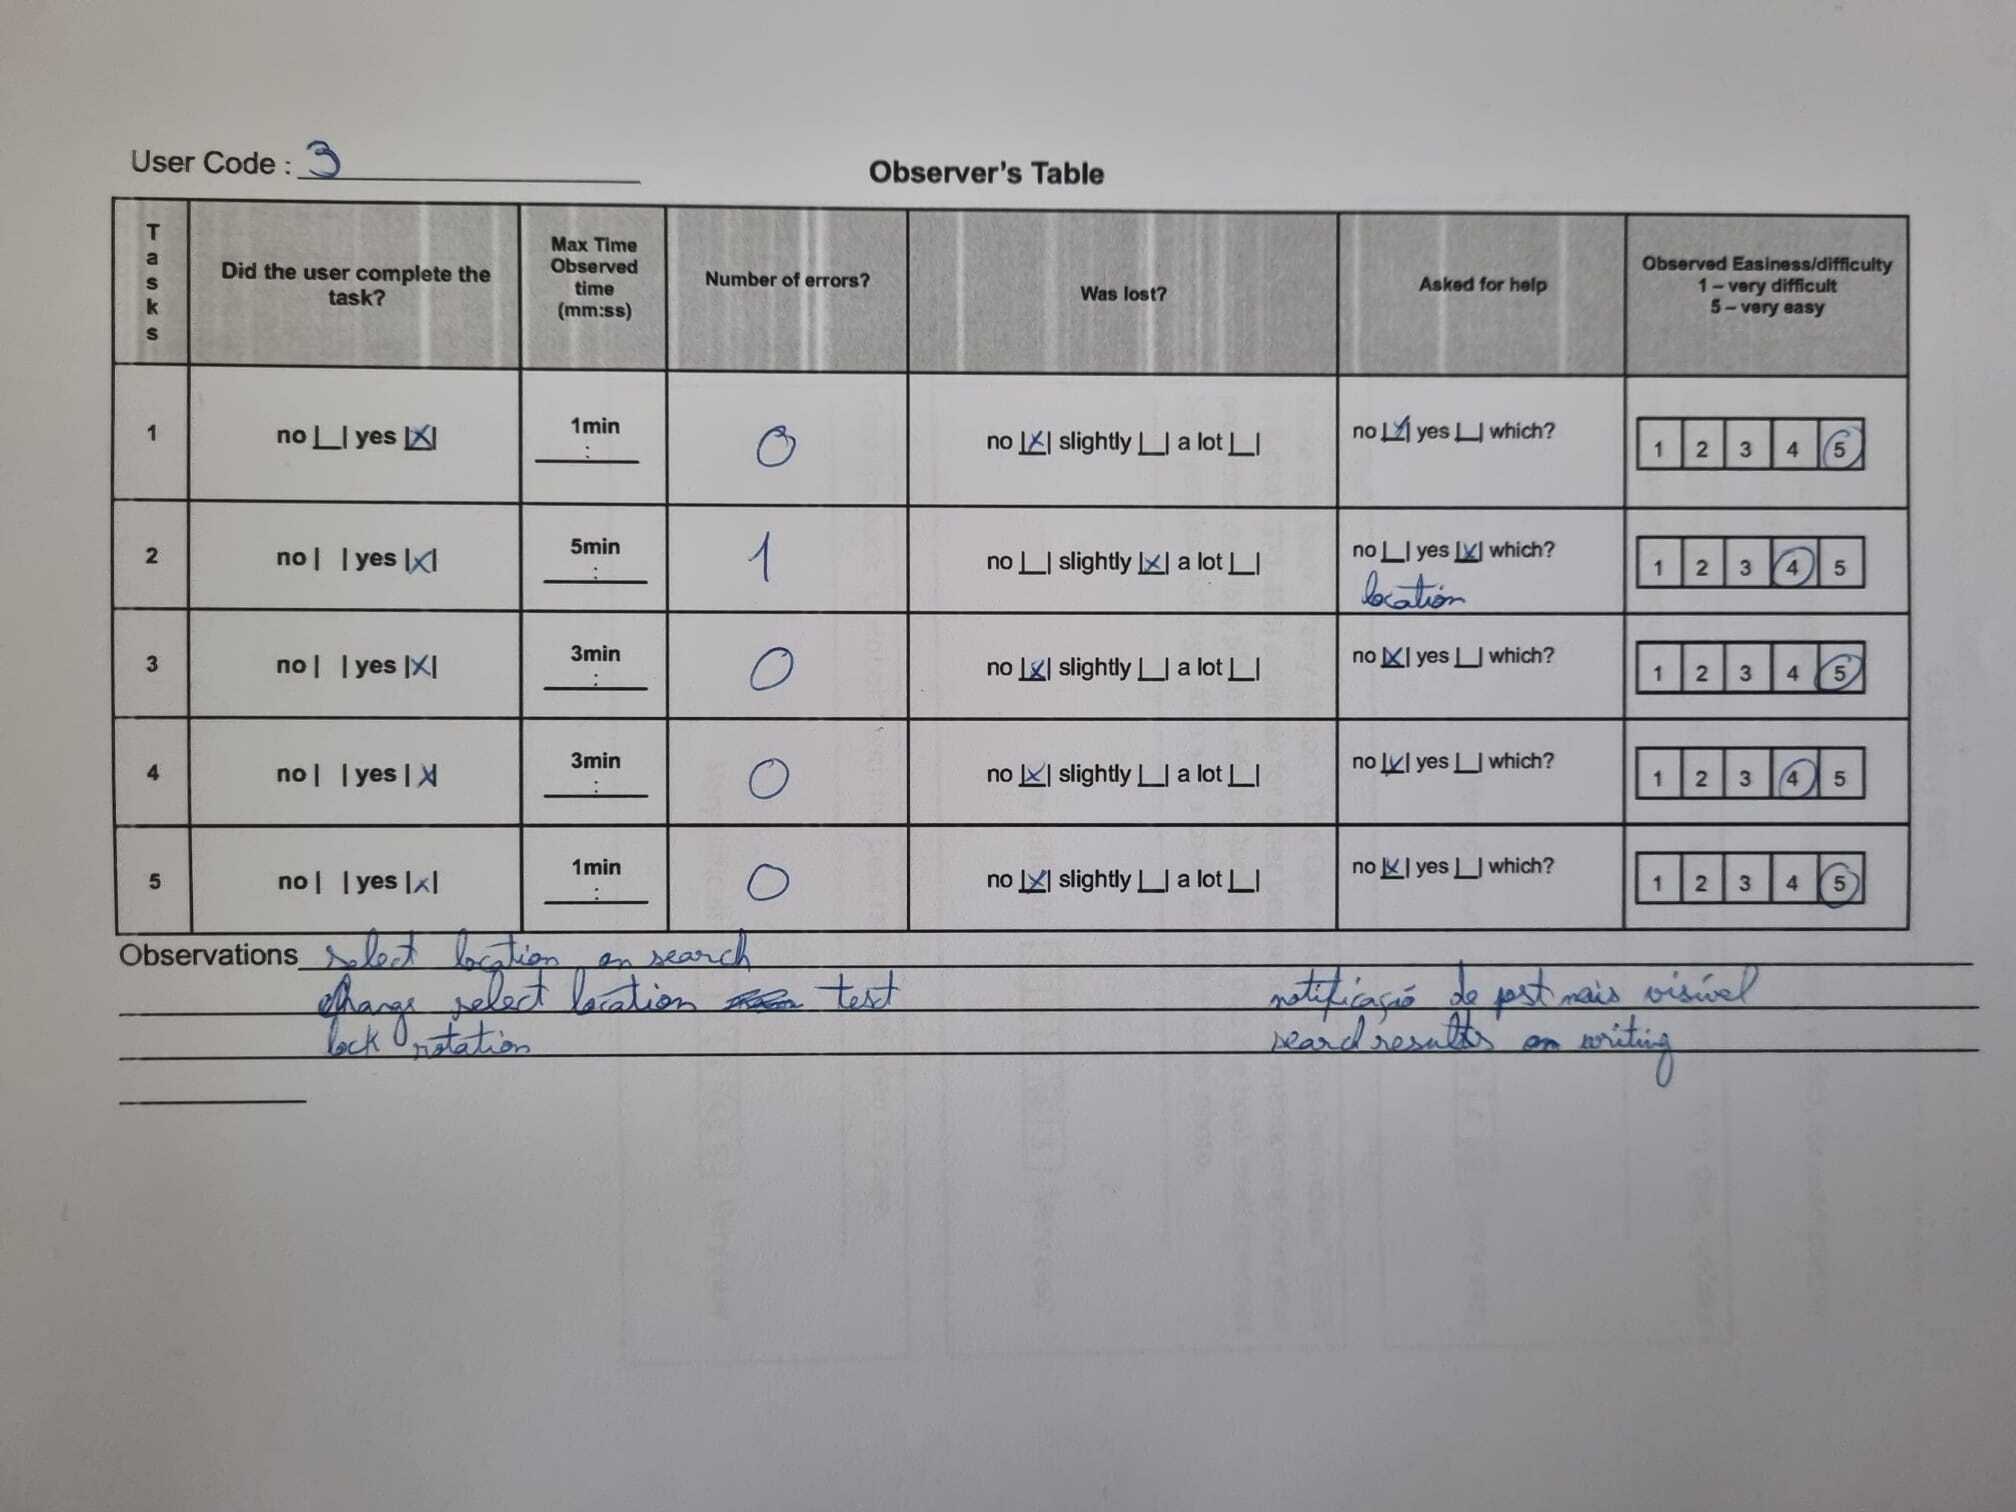 User Code : 3
Observer's Table
Tasks
Did the user complete the task?
Max Time Observed time (mm:ss)
Number of errors?
Was lost?
Asked for help
Observed Easiness/difficulty
1 – very difficult
5 – very easy
1 no |_| yes |x| 1min : 0 no |x| slightly |_| a lot |_| no |x| yes |_| which? 1 2 3 4 5
2 no | | yes |x| 5min : 1 no |_| slightly |x| a lot |_| no |_| yes |x| which? location 1 2 3 4 5
3 no | | yes |x| 3min : 0 no |x| slightly |_| a lot |_| no |x| yes |_| which? 1 2 3 4 5
4 no | | yes |x| 3min : 0 no |x| slightly |_| a lot |_| no |x| yes |_| which? 1 2 3 4 5
5 no | | yes |x| 1min : 0 no |x| slightly |_| a lot |_| no |x| yes |_| which? 1 2 3 4 5
Observations select location on search
change select location test
lock rotation
notificação de post mais visível
search results on writing